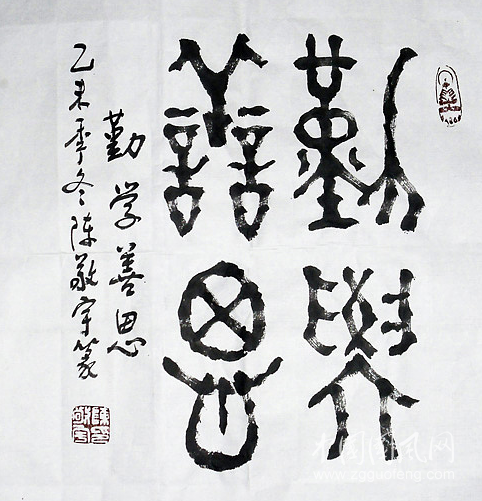 勤學
善思
勤学善思
乙未季冬陈敬宇篆
中国国风网
www.zgguofeng.com